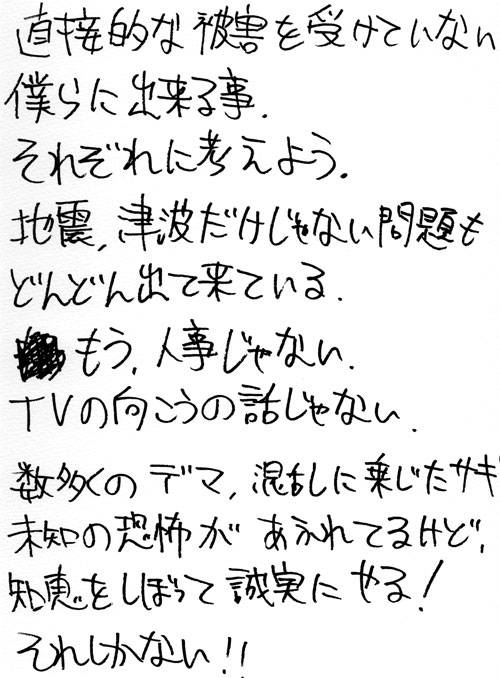 直接的な被害を受けていない
僕らに出来る事.
それぞれに考えよう.
地震,津波だけじゃない問題も
どんどん出て来ている.
もう,人事じゃない.
TVの向こうの話じゃない.
数多くのデマ,混乱に乗じたサギ
未知の恐怖があふれてるけど,
知恵をしぼって誠実にやる!
それしかない!!